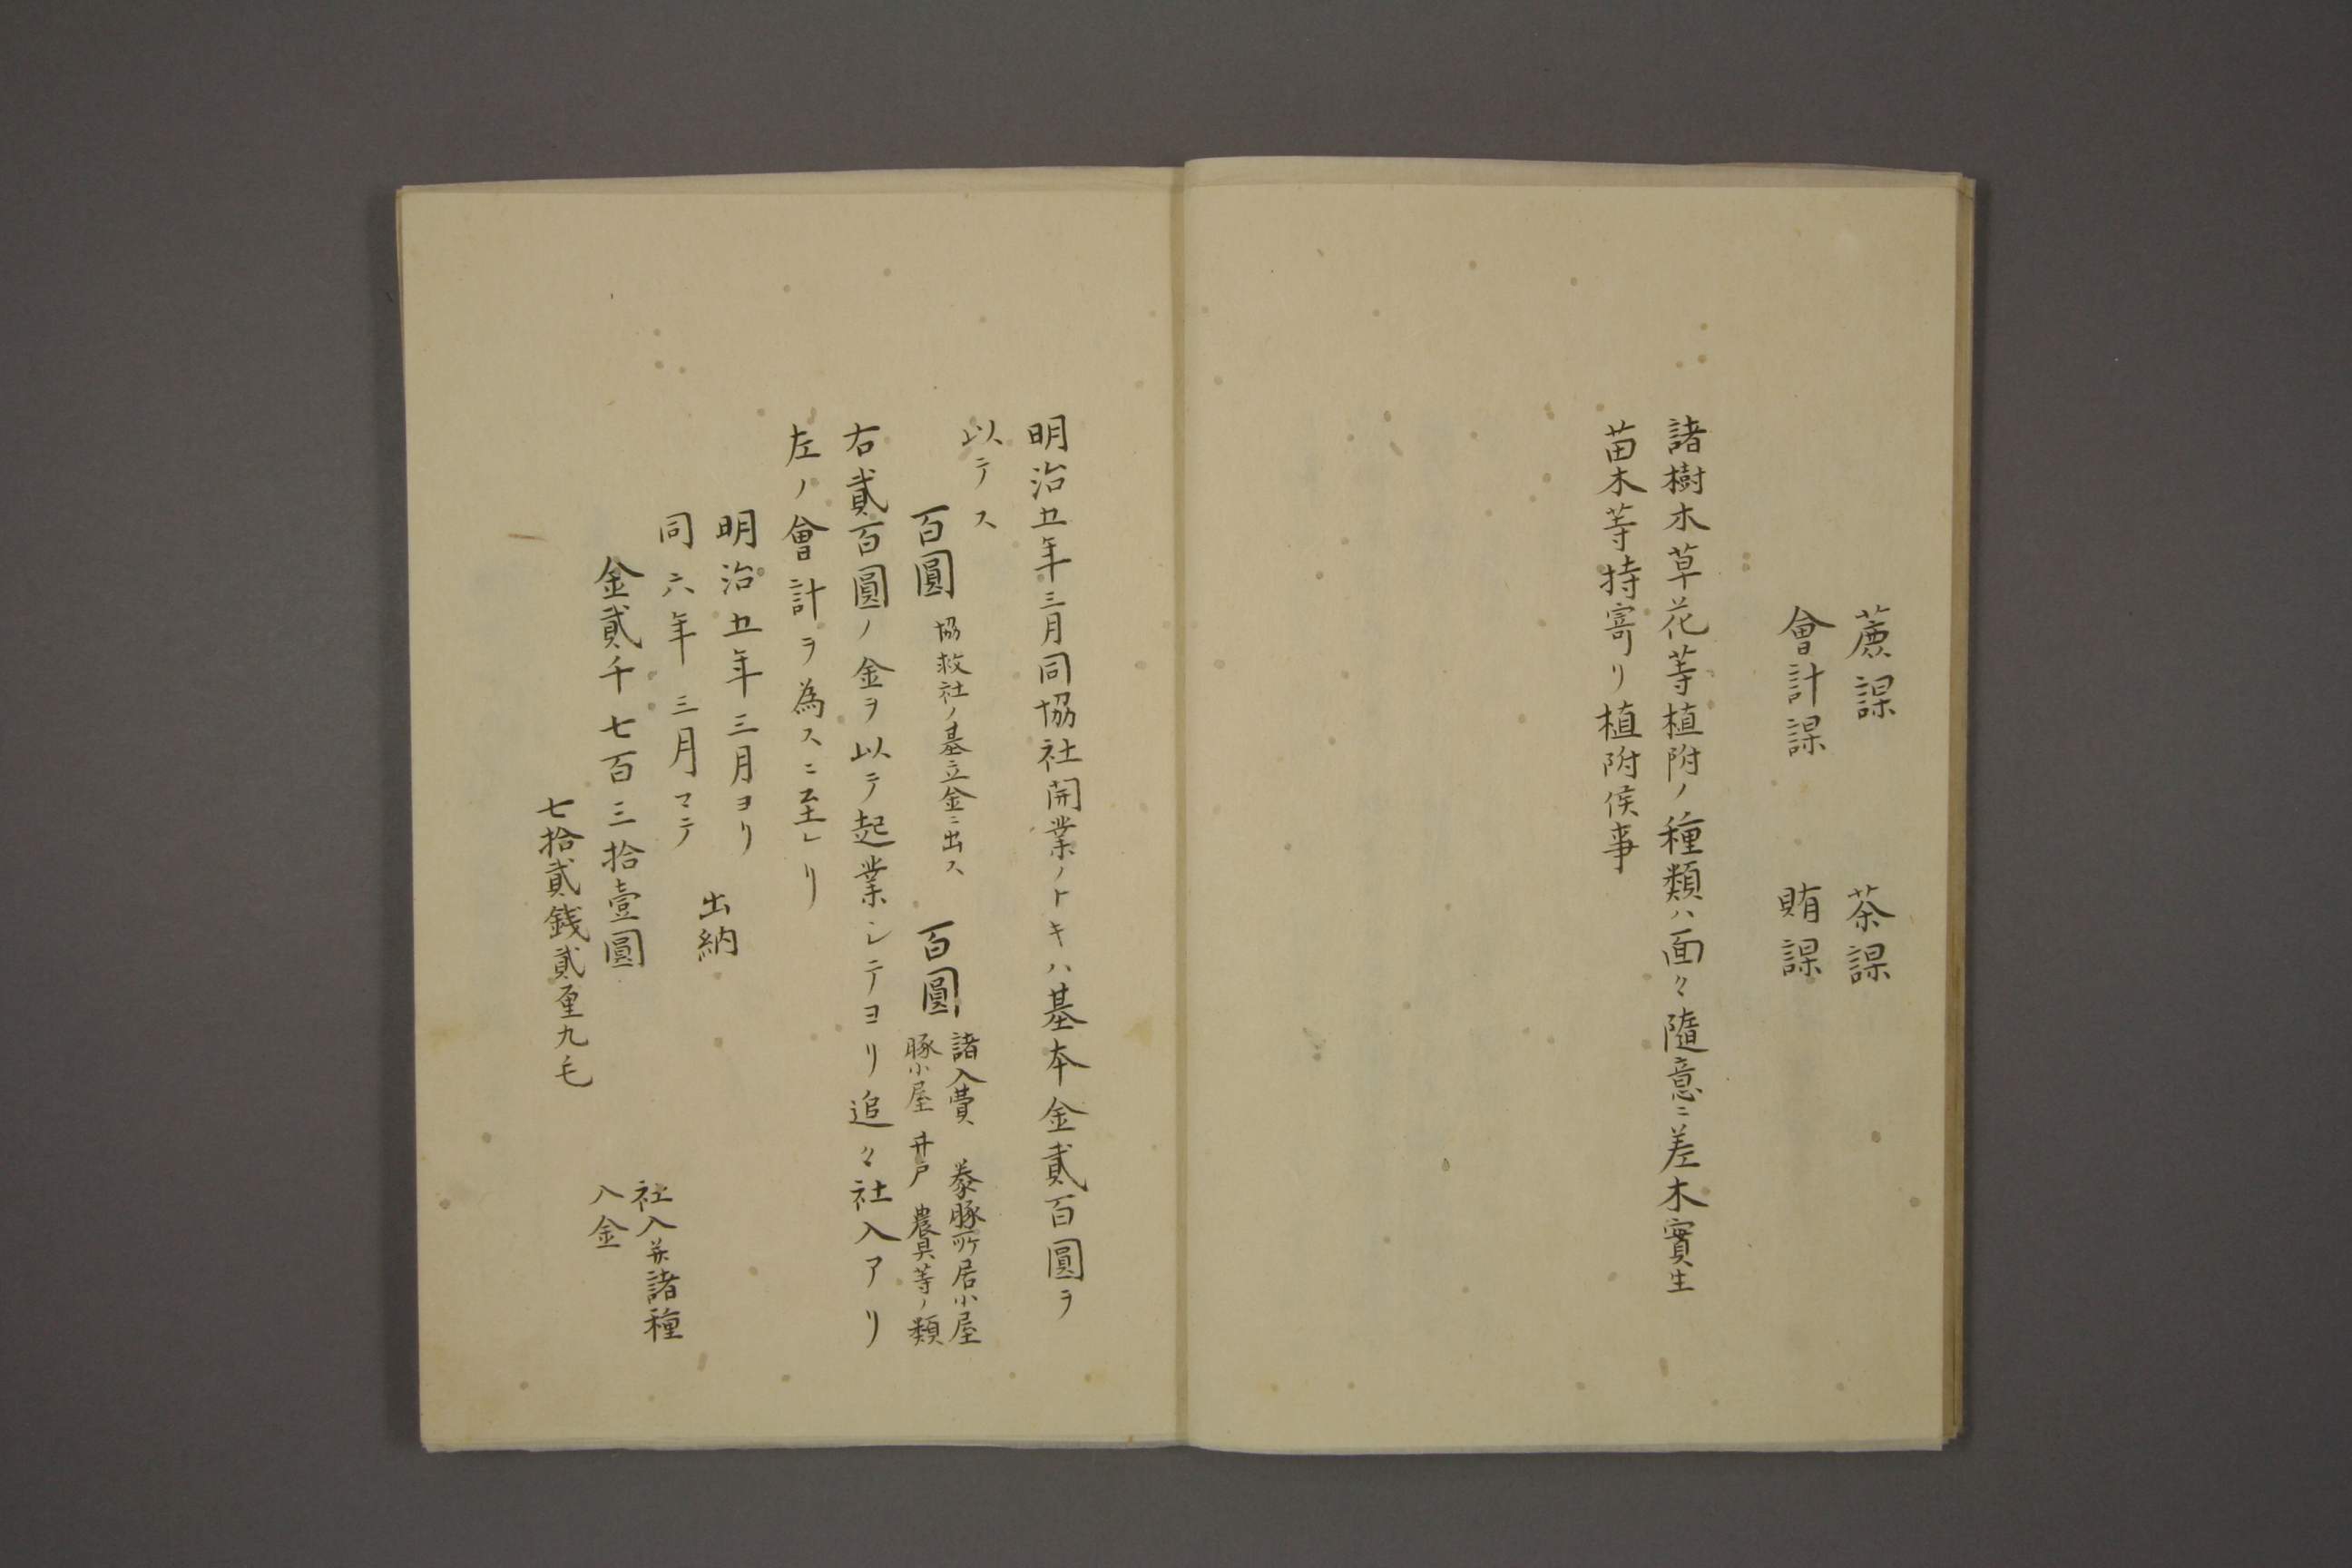 蔗課　茶課
會計課　賄課
諸樹木草花等植附ノ種類ハ面々隨意ニ差木實生
苗木等持寄リ植附候事
明治五年三月同協社開業ノトキハ基本金貳百圓ヲ
以テス
百圓　協救社ノ基立金ニ出ス　百圓　諸入費　豚所居小屋
豚小屋　井戸　農具等ノ類
右貳百圓ノ金ヲ以テ起業シテヨリ追々社入アリ
左ノ會計ヲ為スニ至レリ
明治五年三月ヨリ
同六年三月マテ
出納
金貳千七百三拾壹圓
七拾貳銭貳厘九毛
社入并諸種
入金